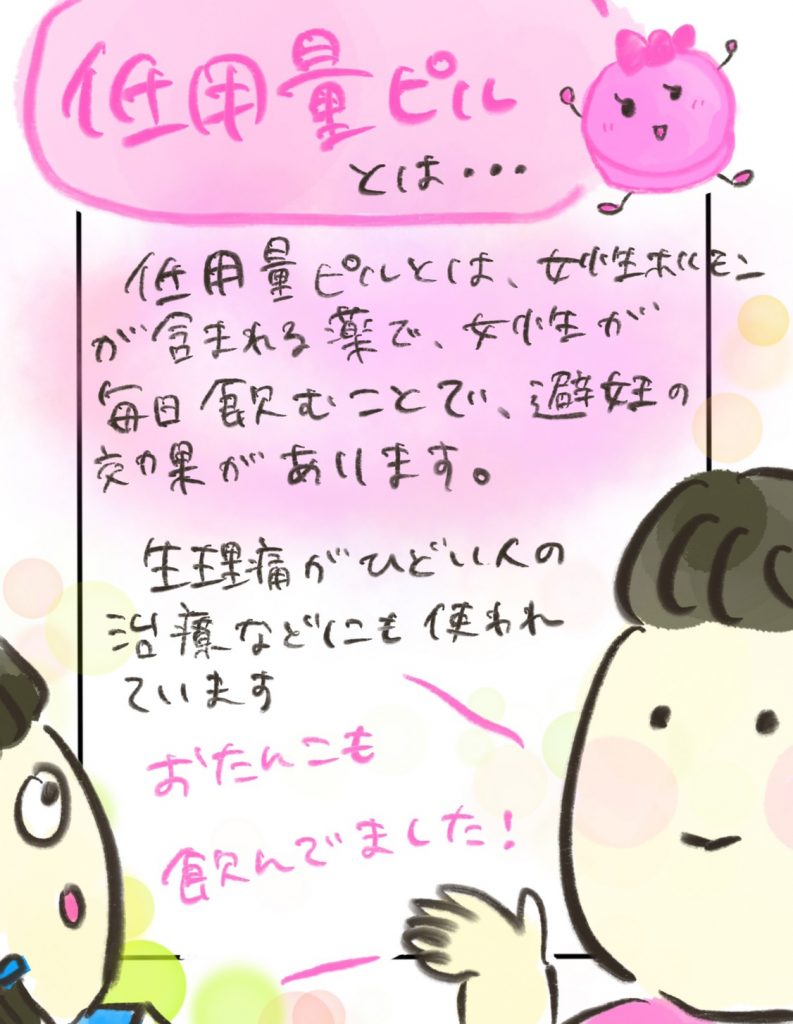 低用量ピル
とは・・・
低用量ピルとは、女性ホルモン
が含まれる薬で、女性が
毎日飲むことで、避妊の
効果があります。
生理痛がひどい人の
治療などにも使われ
ています
おたんこも
飲んでました！